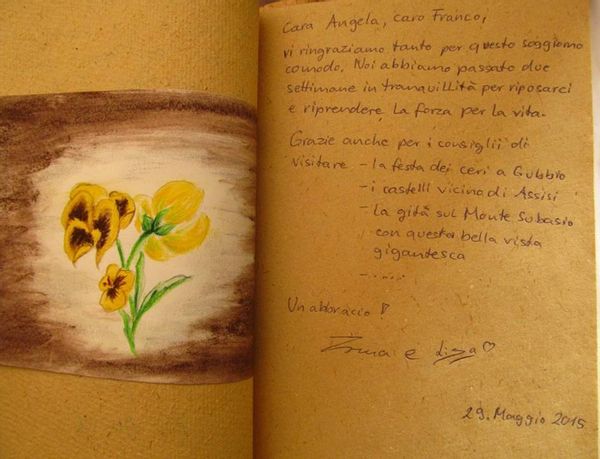 Cara Angela, caro Franco,
vi ringraziamo tanto per questo soggiorno
comodo. Noi abbiamo passato due
settimane in tranquillità per riposarci
e riprendere la forza per la vita.
Grazie anche per i consiglii di
visitare - la festa dei ceri a Gubbio
- i castelli vicina di Assisi
- la gità sul Monte Subasio
con questa bella vista
gigantesca
- .....
Un abbraccio!
e
29. Maggio 2015